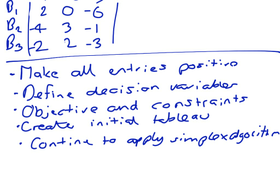 B1 | 2 0 -6 |
B2 | -4 3 -1
B3 | -2 2 -3
• Make all entries positive
• Define decision variables
• Objective and constraints
• Create initial tableau
• Contine to apply simplex algorithm